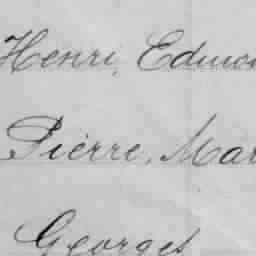 Henri, Edmon
Pierre, Mar
Georges